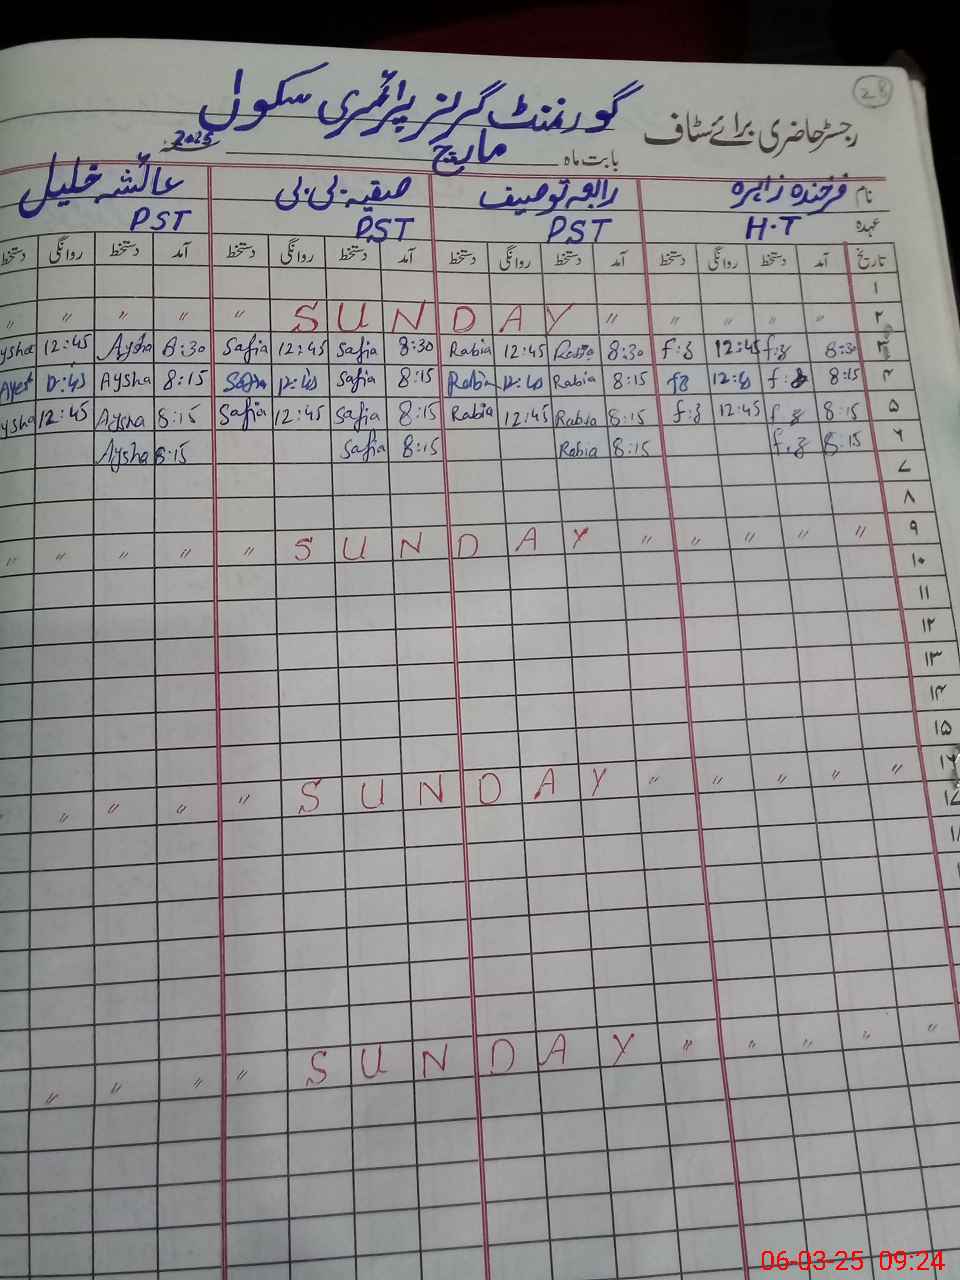 28
رجسٹر حاضری برائے سٹاف گورنمنٹ گرلز پرائمری سکول
بابت ماہ مارچ 2025
نام فرخندہ زاہرہ رابعہ توصیف صفیہ بی بی عائشہ خلیل
عہدہ H.T PST PST PST
تاریخ آمد دستخط روانگی دستخط آمد دستخط روانگی دستخط آمد دستخط روانگی دستخط آمد دستخط روانگی دستخط
۱
۲ " " " " " S U N D A Y " " " " "
۳ 8:30 f.z 12:45 f.z 8:30 Rabia 12:45 Rabia 8:30 Safia 12:45 Safia 8:30 Aysha 12:45 ysha
۴ 8:15 f.z 12:45 fz 8:15 Rabia 12:45 Rabia 8:15 Safia 12:45 Safia 8:15 Aysha 12:45
۵ 8:15 f.z 12:45 f.z 8:15 Rabia 12:45 Rabia 8:15 Safia 12:45 Safia 8:15 Aysha 12:45 ysha
۶ 8:15 f.z 8:15 Rabia 8:15 Safia 8:15 Aysha
۷
۸
۹ " " " " " S U N D A Y " " " " "
۱۰
۱۱
۱۲
۱۳
۱۴
۱۵
۱۶ " " " " " S U N D A Y " " " "
۱۷
" " " " " S U N D A Y " " " "
06-03-25 09:24